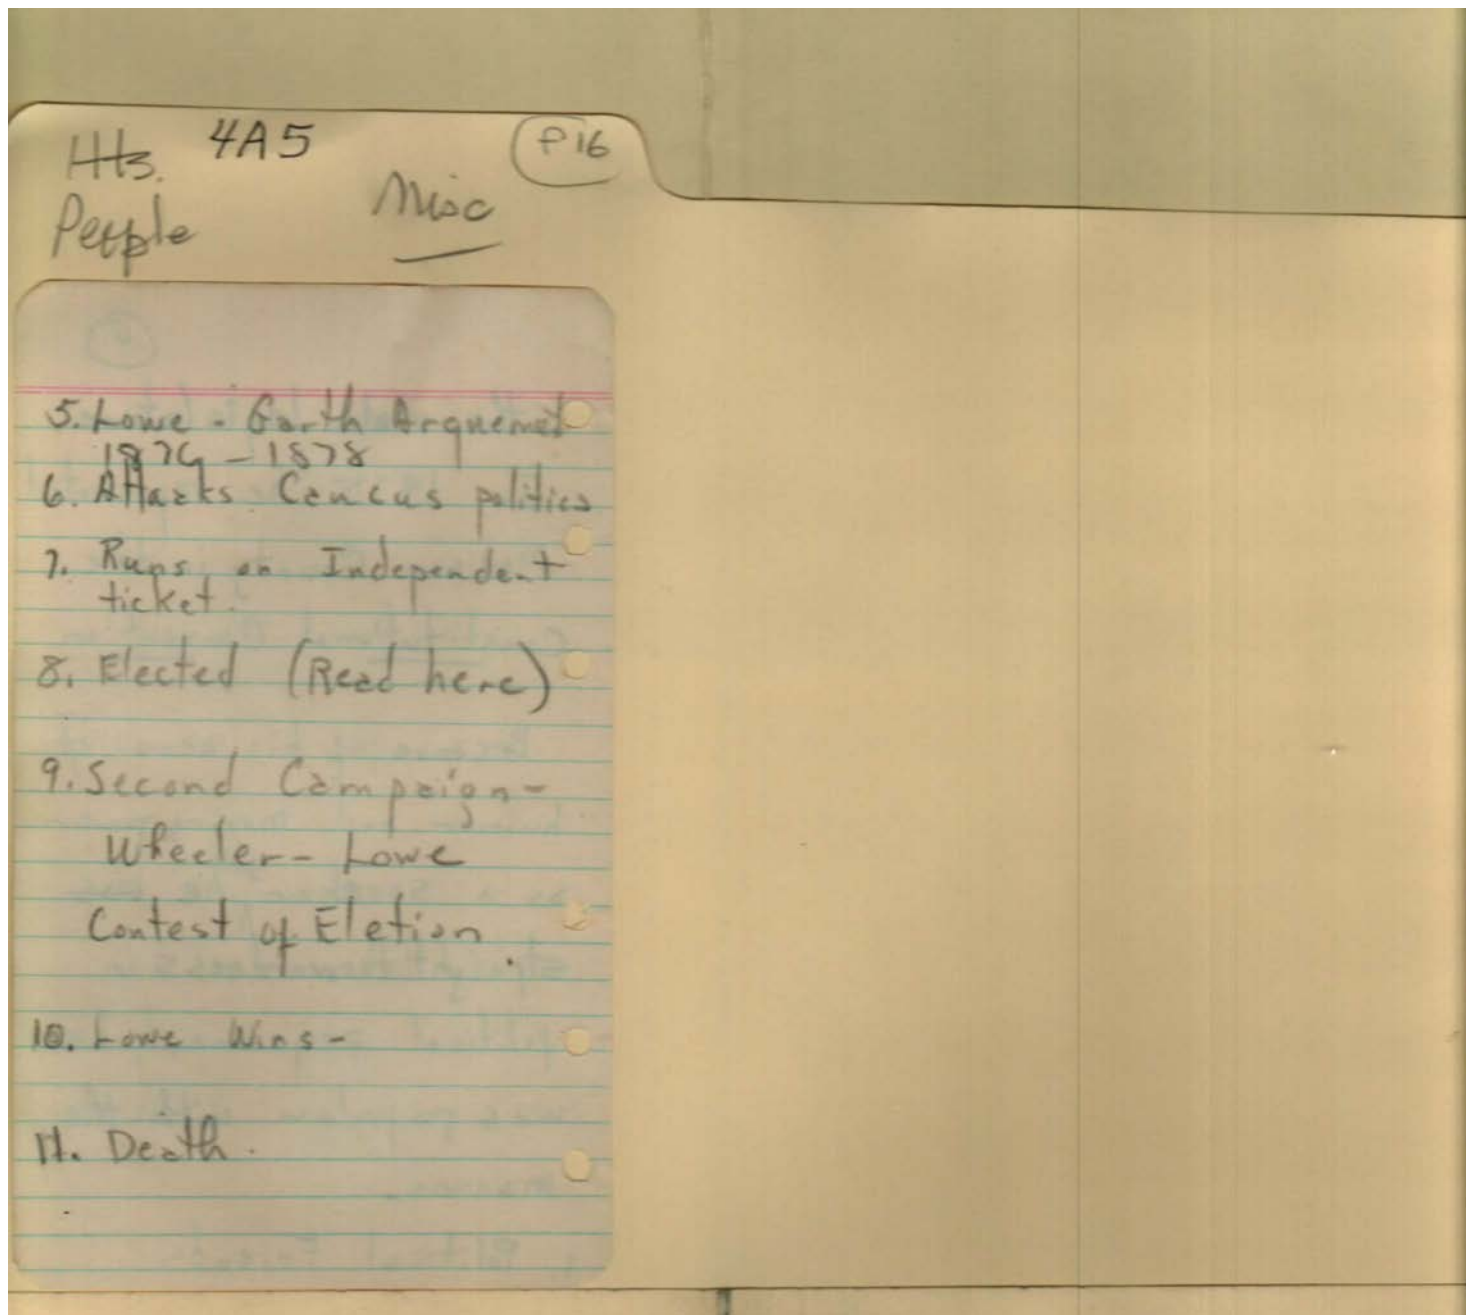 Hts. 4A5 P16
People Misc
5. Lowe - Garth Arguemet
1876 - 1878
6. Attacks Caucus politics
7. Runs on Independent
ticket.
8. Elected (Read here)
9. Second Campaign -
Wheeler - Lowe
Contest of Eletion.
10. Lowe Wins -
11. Death.